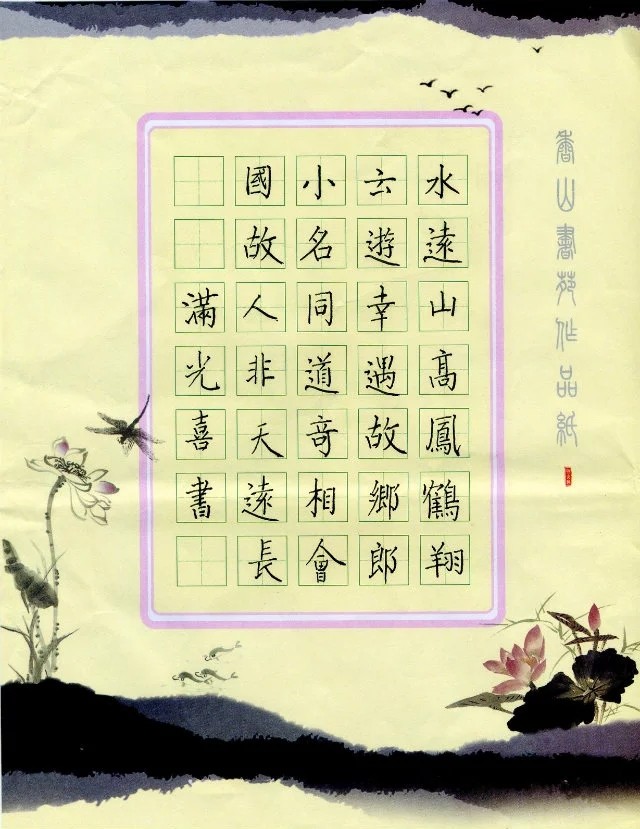 香山書苑作品紙
水遠山高鳳鶴翔
云遊幸遇故鄉郎
小名同道奇相會
國故人非天遠長
滿光喜書